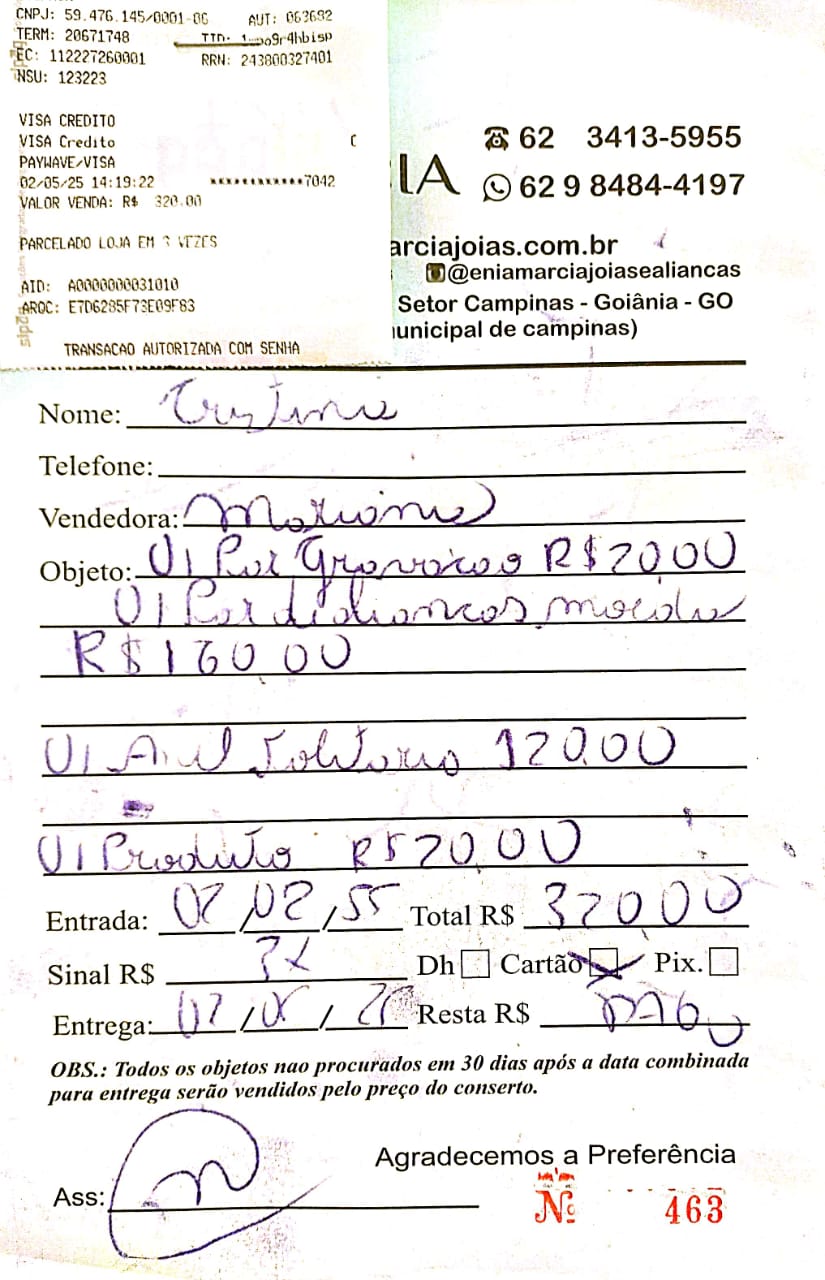 CNPJ: 59.476.145/0001-06 AUT: 063632
TERM: 20671748
EC: 112227260001 RRN: 243800327401
NSU: 123223
VISA CREDITO
VISA Credito C
PAYWAVE/VISA
02/05/25 14:19:22 ************7042
VALOR VENDA: R$ 320.00
PARCELADO LOJA EM 3 VEZES
AID: A0000000031010
ARQC: E7D6285F73E09F83
TRANSACAO AUTORIZADA COM SENHA
62 3413-5955
IA
62 9 8484-4197
arciajoias.com.br
@eniamarciajoiasealiancas
Setor Campinas - Goiânia - GO
unicipal de campinas)
Nome: Cristina
Telefone:
Vendedora: Mariana
Objeto: 01 Par Gravacao R$ 20,00
01 Par de aliancas moeda
R$ 160 00
01 Anel Solitario 120,00
01 Produto R$ 20,00
Entrada: 02 / 02 / 55 Total R$ 320 00
Sinal R$ 3x Dh Cartão Pix.
Entrega: 02 / 05 / 25 Resta R$ PAGO
OBS.: Todos os objetos nao procurados em 30 dias após a data combinada
para entrega serão vendidos pelo preço do conserto.
Agradecemos a Preferência
Ass:
Nº 463